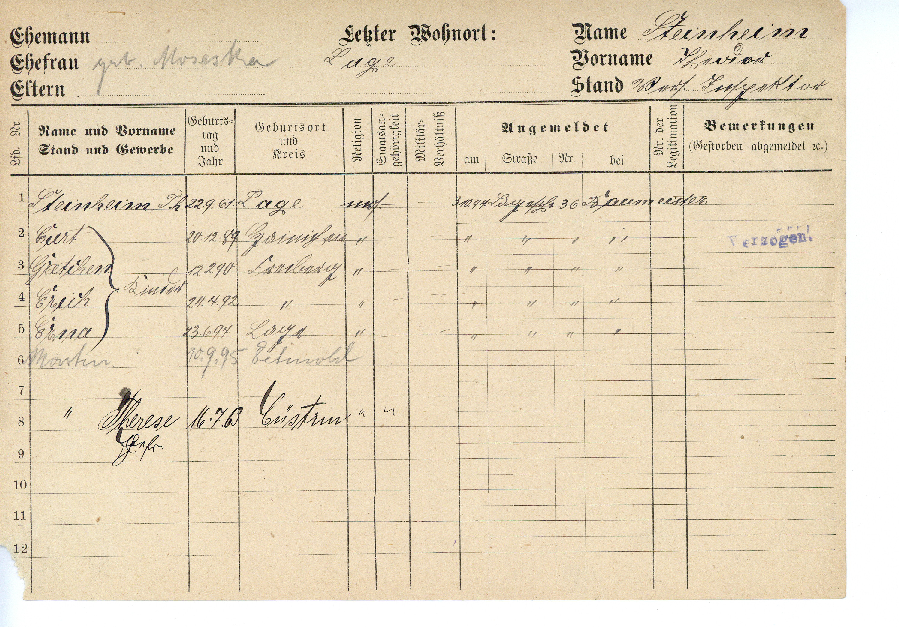 Ehemann Letzter Wohnort: Name Steinheim
Ehefrau geb. Lage Vorname Theodor
Eltern Stand Inspektor
Lfd. Nr Name und Vorname Stand und Gewerbe Geburts-tag und Jahr Geburtsort und Kreis Religion Staatsan-gehörigkeit Militär-Verhältniß Angemeldet am Straße Nr bei Nr. der Legitimation Bemerkungen (Gestorben abgemeldet ec.)
1 Steinheim Th 22 9 61 Lage 36 Baumeister
2 Curt 20 12 89 " " " " "
3 Gretchen 12 2 90 " " " " "
Kinder
4 Erich 24 4 92 " " " " " "
5 Erna 23 6 94 Lage " " " " "
Verzogen.
6 Martin 10. 9. 95 Detmold
7
8 " Therese 16 7 63 Cüstrin " "
9
10
11
12